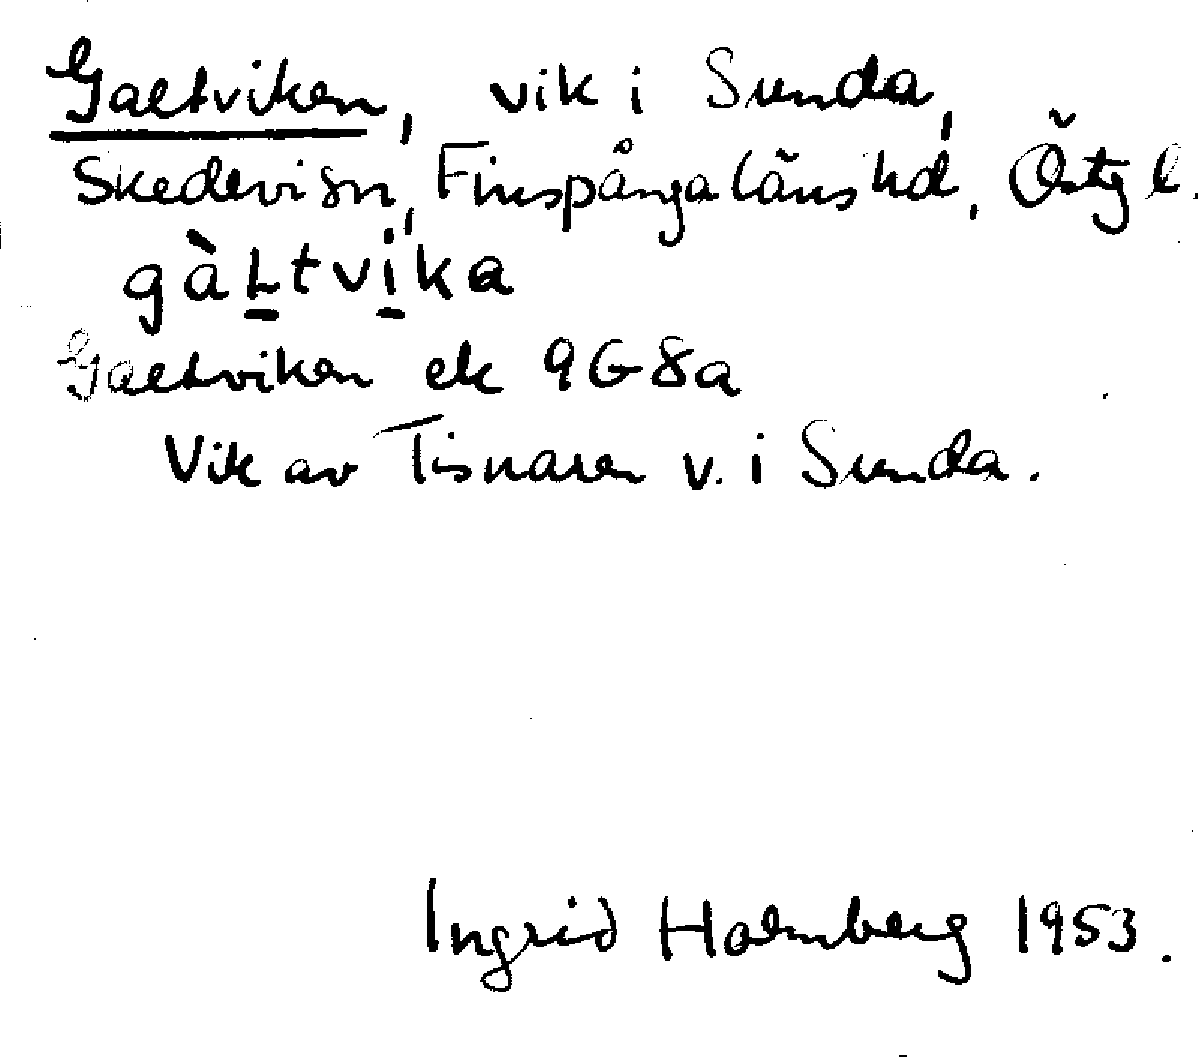 Galtviken, vik i Sunda,
Skedevi sn, Finspånga läns hd, Östg l.
gàLtvika
Galtviken ek 9G8a
Vik av Tisnaren v. i Sunda.
Ingrid Holmberg 1953.